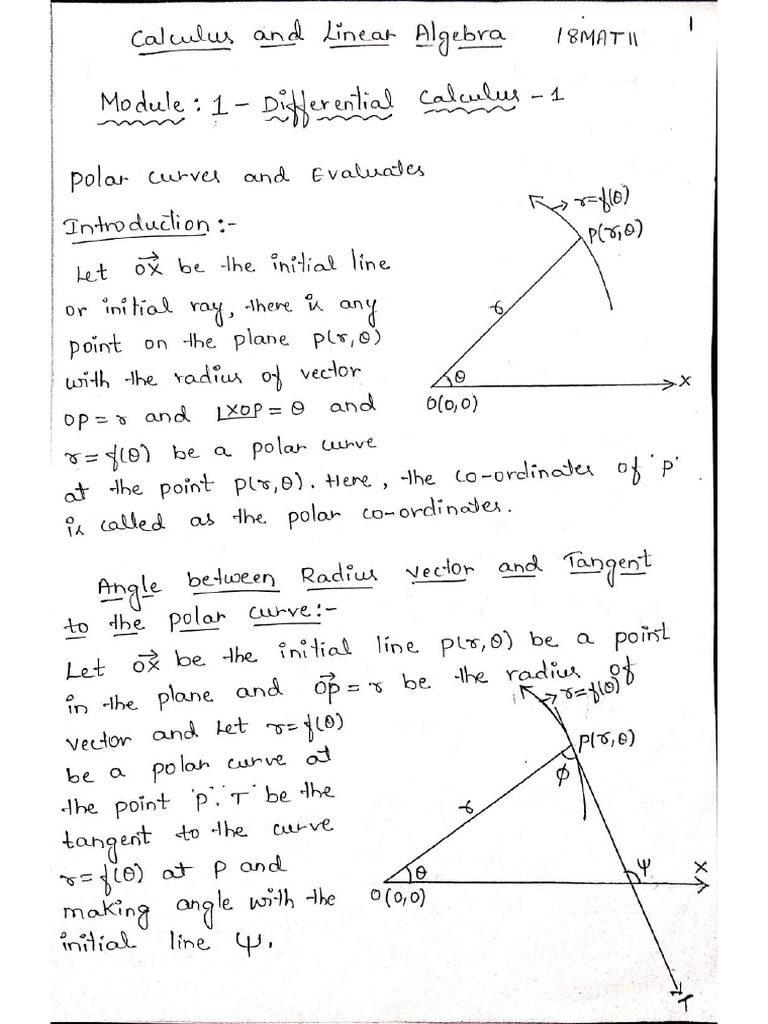 1
Calculus and Linear Algebra 18MAT11
Module: 1 - Differential Calculus - 1
Polar curves and Evaluates
Introduction:-
Let OX be the initial line
or initial ray, there is any
point on the plane P(r,θ)
with the radius of vector
OP = r and ∠XOP = θ and
r = f(θ) be a polar curve
at the point P(r,θ). Here, the co-ordinates of 'P'
is called as the polar co-ordinates.
r=f(θ)
P(r,θ)
r
θ
X
O(0,0)
Angle between Radius vector and Tangent
to the polar curve:-
Let OX be the initial line P(r,θ) be a point
in the plane and OP = r be the radius of
vector and Let r=f(θ)
be a polar curve at
the point 'P'. T be the
tangent to the curve
r=f(θ) at P and
making angle with the
initial line ψ.
r=f(θ)
P(r,θ)
φ
r
θ
ψ
X
O(0,0)
T